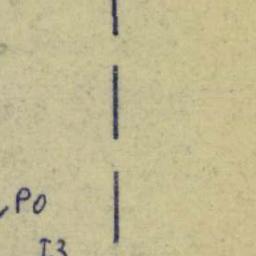 PO
I3